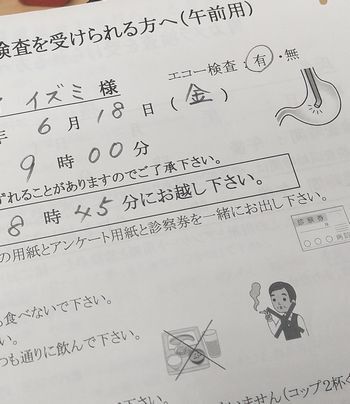 検査を受けられる方へ(午前用)
イズミ 様 エコー検査:有・無
年 6 月 18 日 (金)
9 時 00 分
ずれることがありますのでご了承下さい。
8 時 45 分にお越し下さい。
の用紙とアンケート用紙と診察券を一緒にお出し下さい。
診察券
〇〇〇病院
食べないで下さい。
い。
つも通りに飲んで下さい。
いません(コップ2杯く